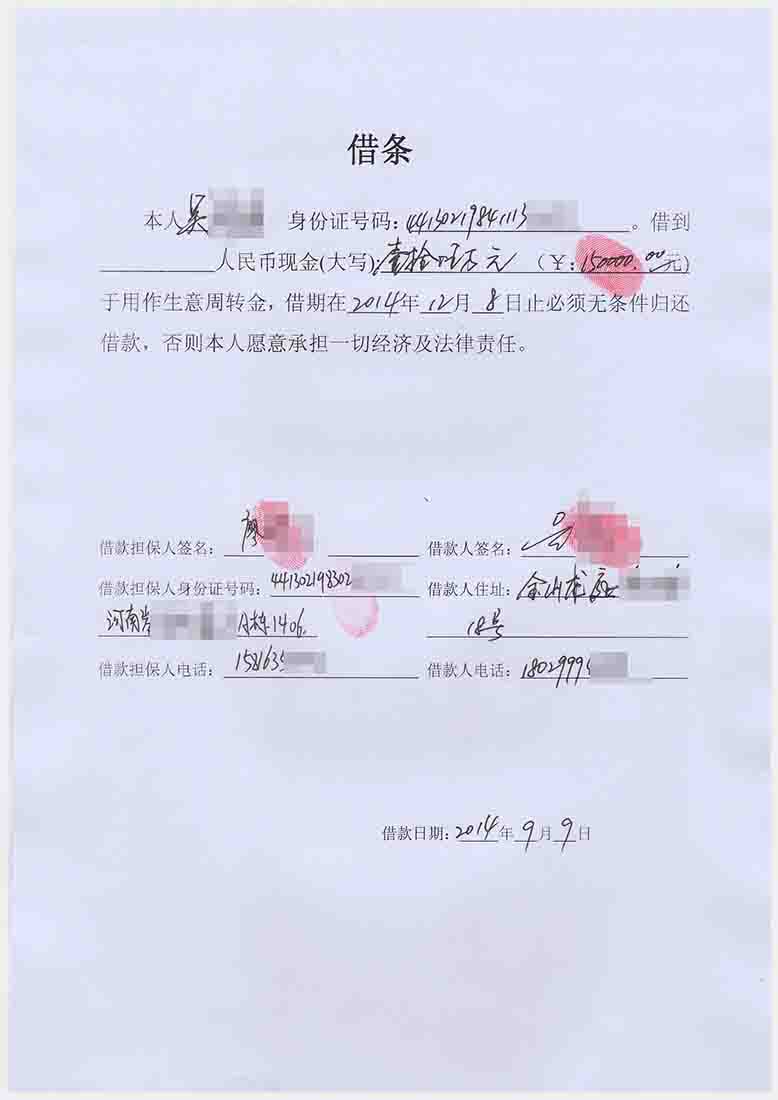 借条
本人 吴 身份证号码：44130219841113 。借到
人民币现金(大写)：壹拾伍万元 （￥：150000.00元)
于用作生意周转金，借期在2014年12月8日止必须无条件归还
借款，否则本人愿意承担一切经济及法律责任。
借款担保人签名：廖 借款人签名：吴
借款担保人身份证号码：441302198302 借款人住址：
河南岸 A栋1406 18号
借款担保人电话：158163 借款人电话：18029999
借款日期：2014年9月9日